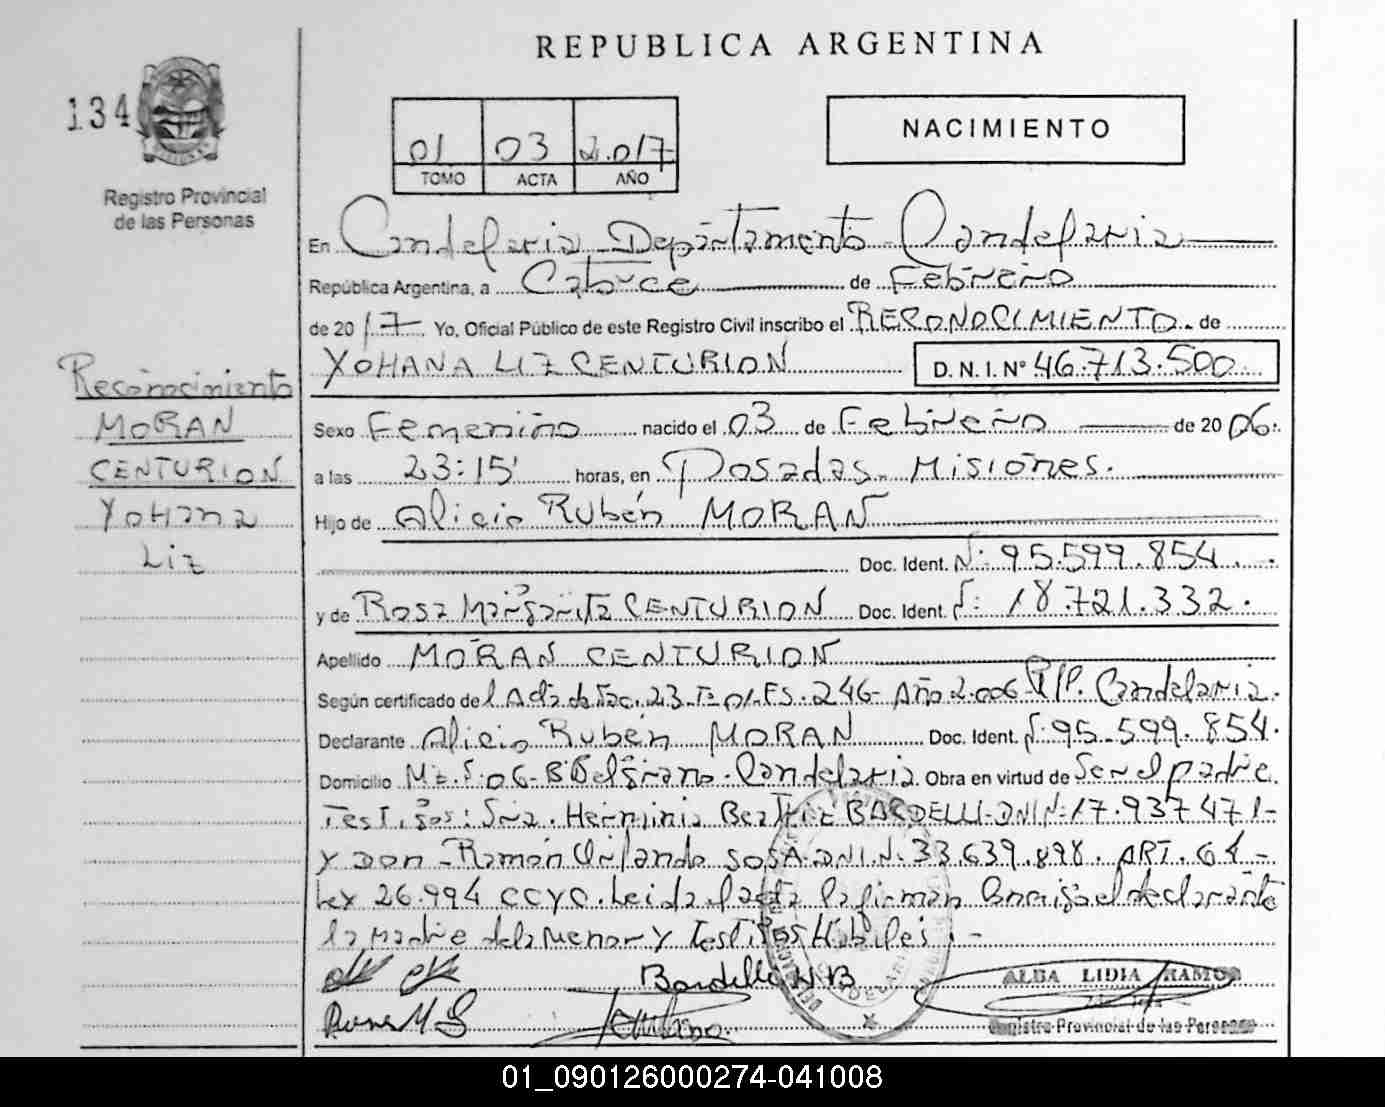 REPUBLICA ARGENTINA
134
NACIMIENTO
01 03 2.017
TOMO ACTA AÑO
Registro Provincial
de las Personas
En Candelaria Departamento Candelaria
República Argentina, a Catorce de Febrero
de 2017. Yo, Oficial Público de este Registro Civil inscribo el RECONOCIMIENTO de
YOHANA LIZ CENTURION D. N. I. Nº 46.713.500
Reconocimiento
MORAN
CENTURION
Yohana
Liz
Sexo Femenino nacido el 03 de Febrero de 2006.
a las 23:15' horas, en Posadas. Misiones.
Hijo de Alicio Rubén MORAN
Doc. Ident. N: 95.599.854.
y de Rosa Margarita CENTURION Doc. Ident. N: 18.721.332.
Apellido MORAN CENTURION
Según certificado del Acta de Nac. 23. Tº 01. FS. 246- Año 2.006- Candelaria.
Declarante Alicio Rubén MORAN Doc. Ident. N: 95.599.854.
Domicilio Mz. 5. 06- Bº Belgrano. Candelaria. Obra en virtud de Ser el padre.
Testigos: Sra. Herminia Beatriz BARDELLI- DNI N: 17.937.471-
y Don Ramón Orlando SOSA. DNI. N: 33.639.898. ART. 64-
Ley 26.994 CCYC. Leida el acta la firman Conmigo el declarante
la madre de la menor y testigos Hábiles:-
Bardelli H B
ALBA LIDIA RAMOS
Registro Provincial de las Personas
01_090126000274-041008